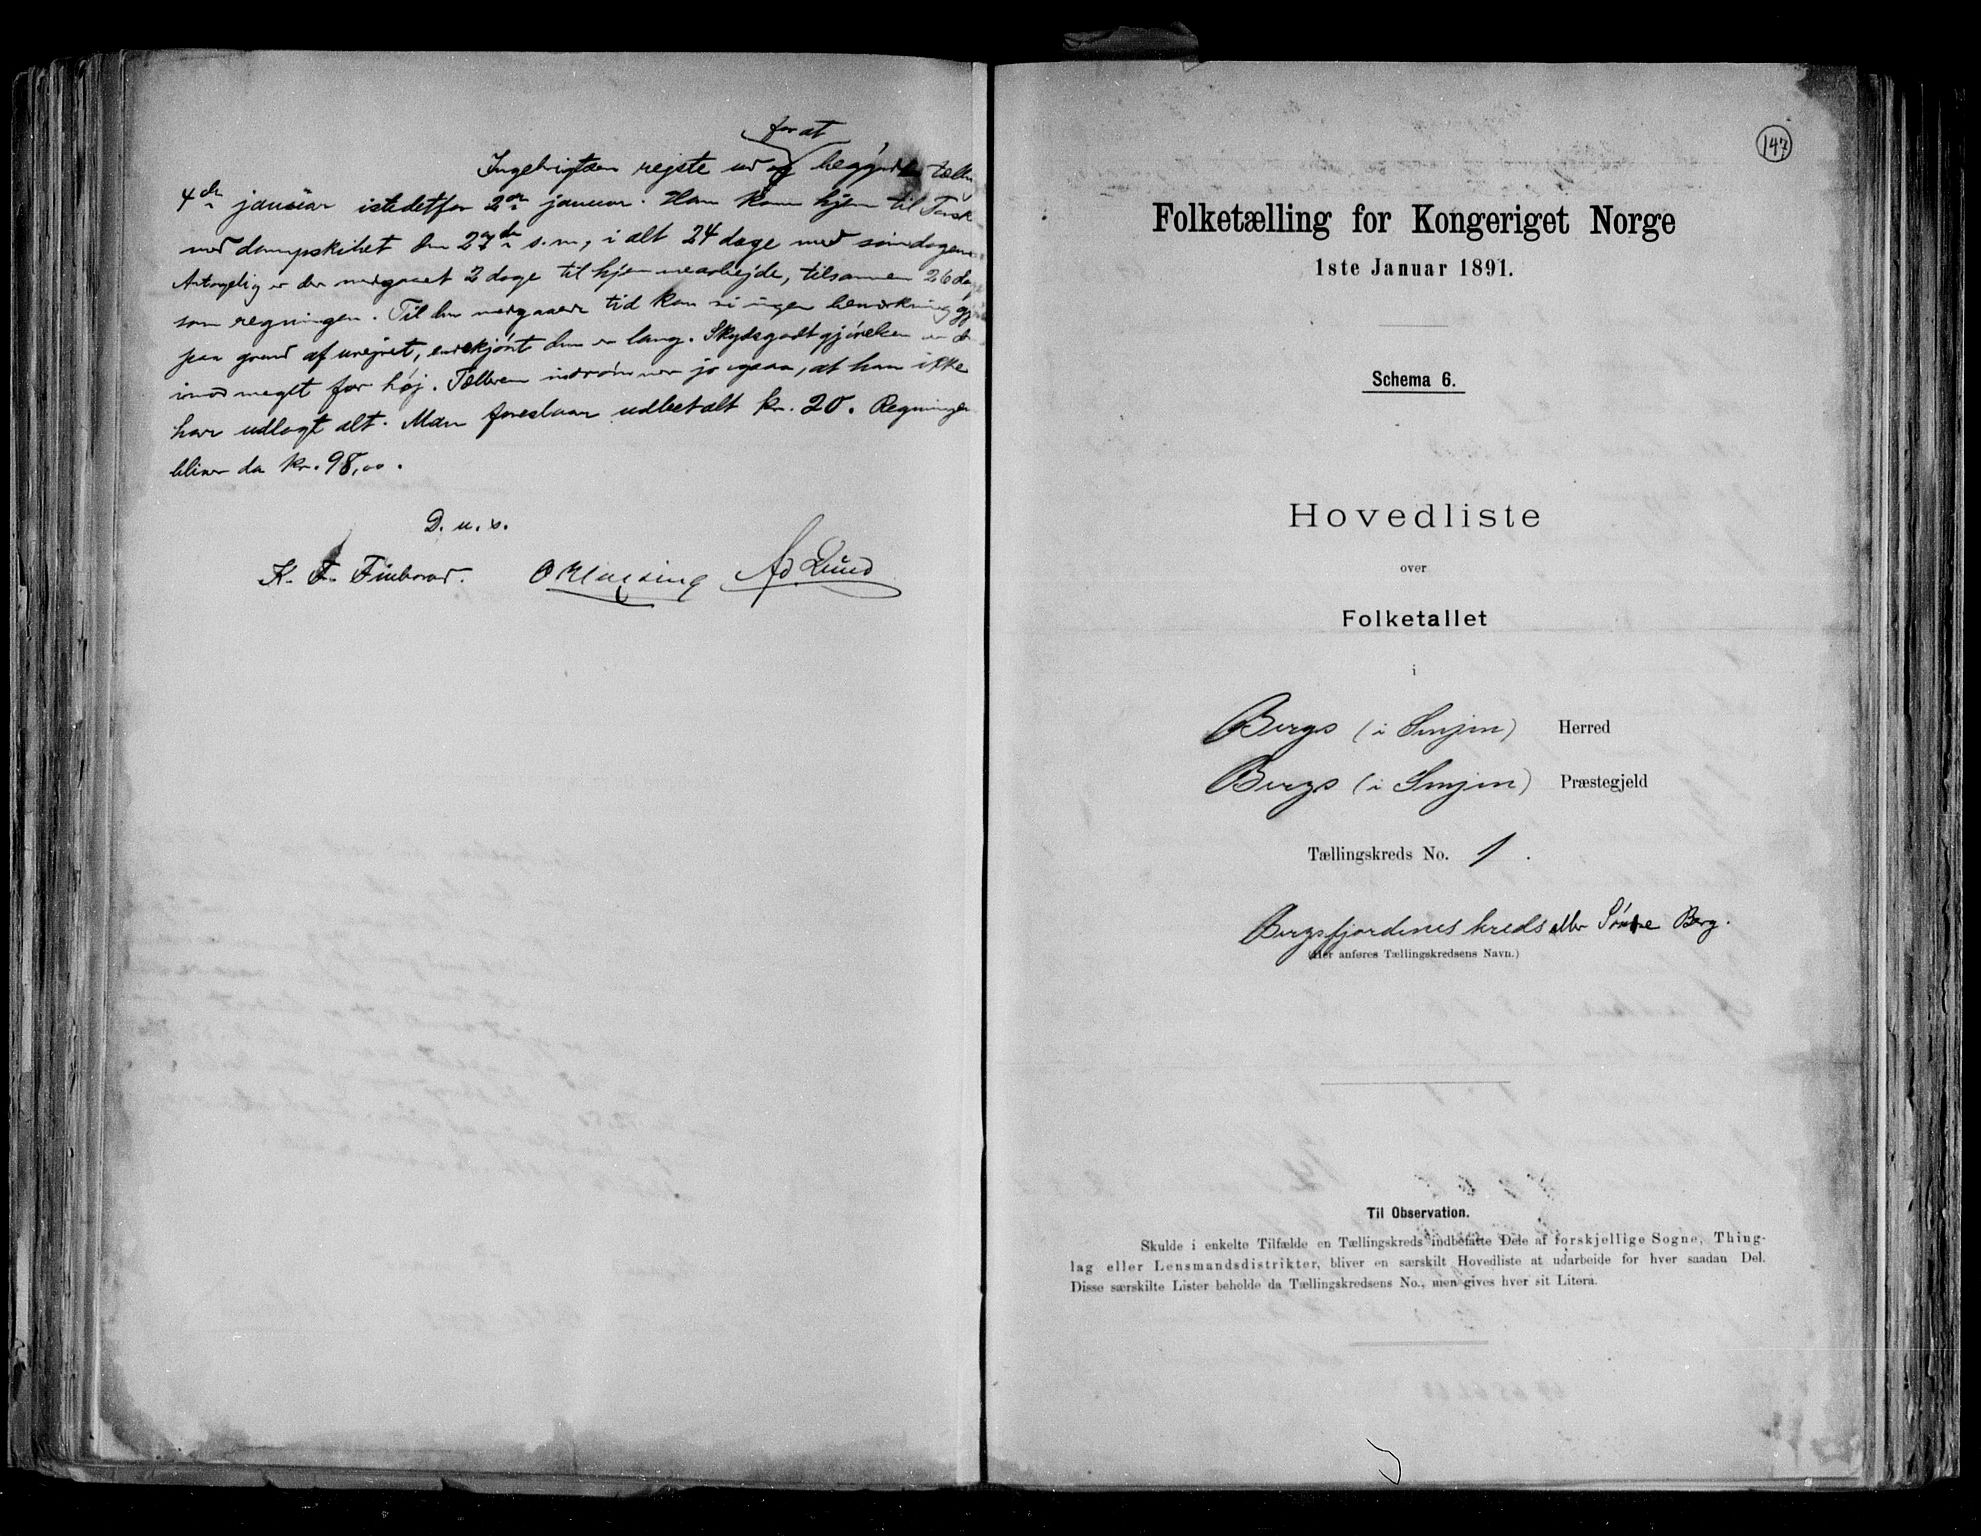 for at
Ingebrigtsen rejste ud og begyndte
4de januar istedetfor 2den januar. Han kom hjem til Torsk
med dampskibet den 27de s.m., i alt 24 dage med søndagene.
Antagelig er der medgaaet 2 dage til hjemmearbejde, tilsammen 26
som regningen. Til den medgaaede tid kan vi ingen bemærkning
paa grund af uvejret, endskjønt den er lang. Skydsgodtgjørelsen
meget for høj. Tælleren indrømmer jo ogsaa, at han ikke
har udlagt alt. Man foreslaar udbetalt kr. 20. Regningen
bliver da kr. 98,00.
D. u. s.
K. F. Finborud. O Klausing Ad. Lund
147
Folketælling for Kongeriget Norge
1ste Januar 1891.
Schema 6.
Hovedliste
over
Folketallet
i
Bergs (i Senjen) Herred
Bergs (i Senjen) Præstegjeld
Tællingskreds No. 1.
Bergsfjordenes kreds eller Søndre Berg.
(Her anføres Tællingskredsens Navn.)
Til Observation.
Skulde i enkelte Tilfælde en Tællingskreds indbefatte Dele af forskjellige Sogne, Thing-
lag eller Lensmandsdistrikter, bliver en særskilt Hovedliste at udarbeide for hver saadan Del.
Disse særskilte Lister beholde da Tællingskredsens No., men gives hver sit Litera.